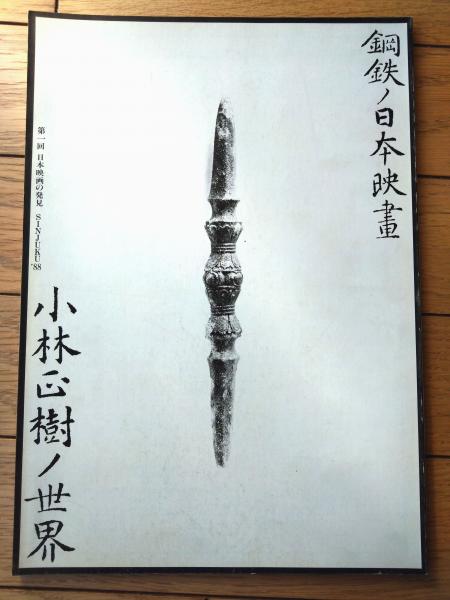 鋼鉄ノ日本映畫
第一回 日本映画の発見 SINJUKU '88
小林正樹ノ世界